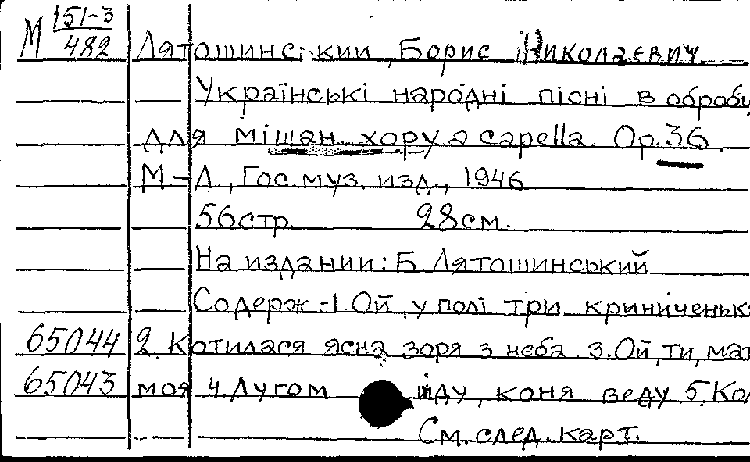 М 151-3
482 Лятошинський, Борис Николаевич
Українські народні пісні в обробц
для мішан. хору a capella. Op.36.
М.-Л., Гос. муз. изд., 1946
56стр. 28см.
На издании: Б. Лятошинський
Содерж.-1. Ой, у полі три криниченьк
65044 2. Котилася ясна зоря з неба. 3. Ой, ти, мат
65043 моя 4. Лугом іду, коня веду 5. Кол
См. след. карт.